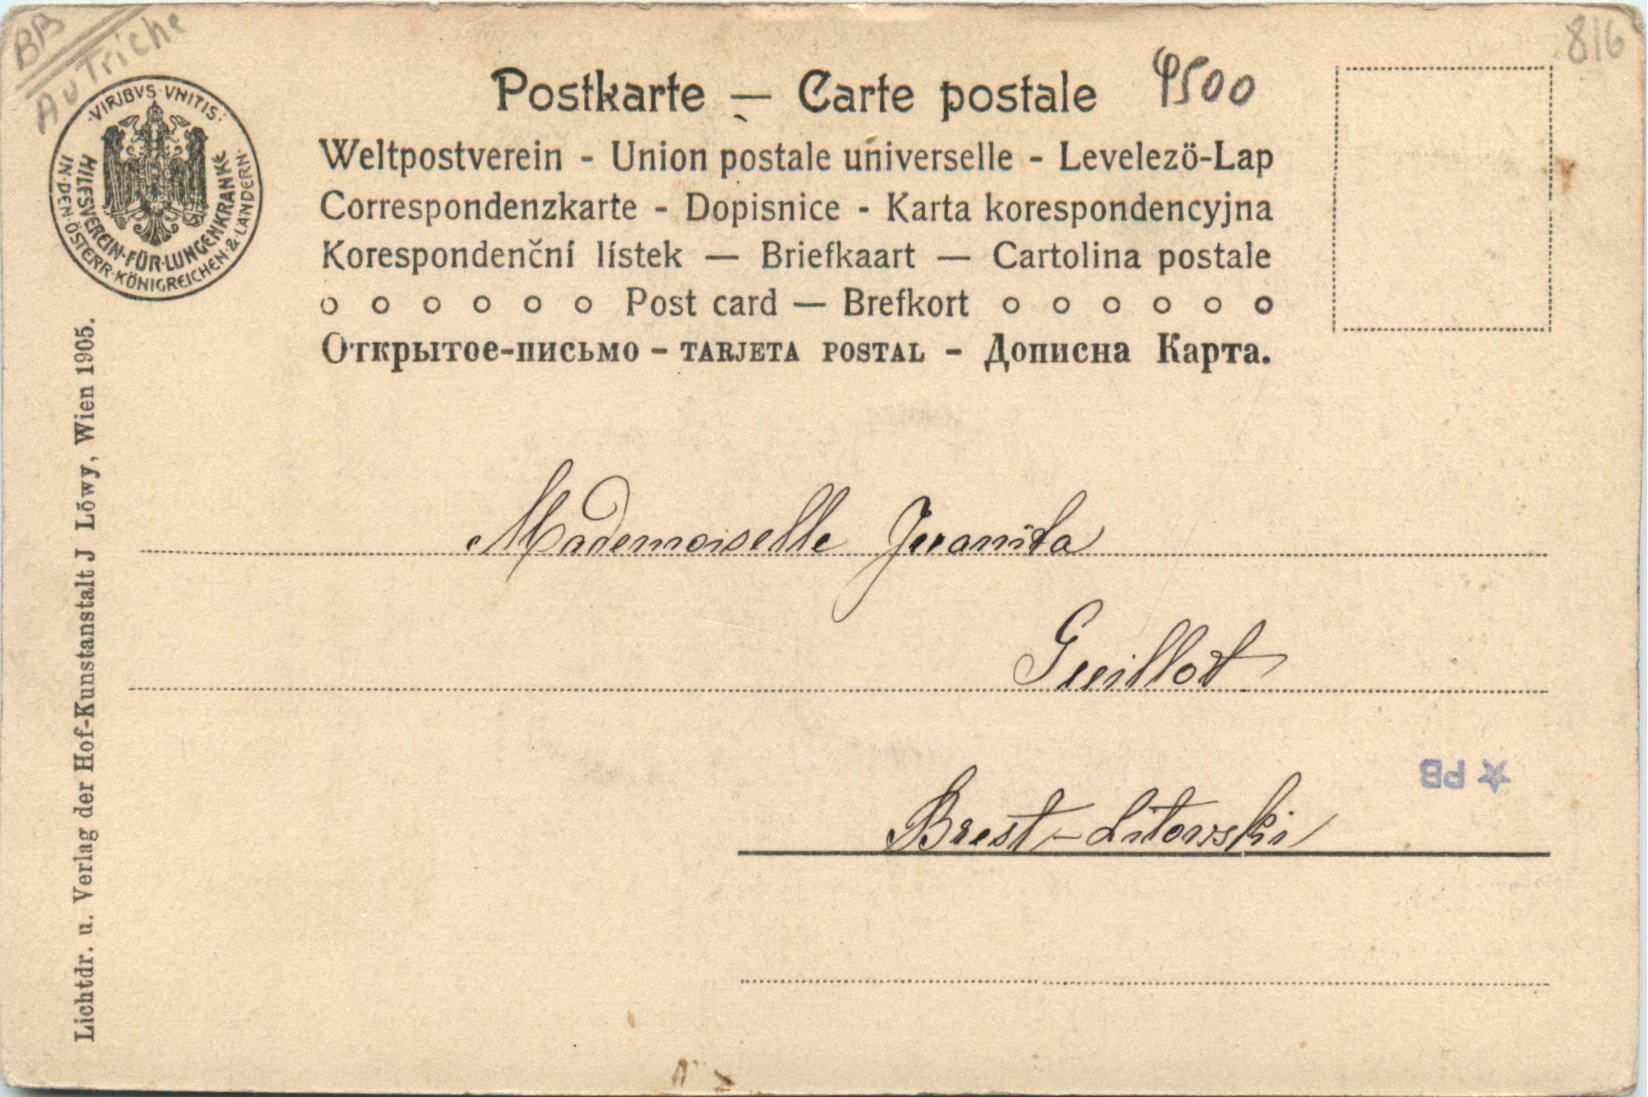 BB
Autriche
816
·VIRIBVS·VNITIS·
HILFSVEREIN·FÜR·LUNGENKRANKE
IN·DEN·ÖSTERR·KÖNIGREICHEN·&·LÄNDERN·
Postkarte — Carte postale
9500
Weltpostverein - Union postale universelle - Levelezö-Lap
Correspondenzkarte - Dopisnice - Karta korespondencyjna
Korespondenční lístek — Briefkaart — Cartolina postale
o o o o o o Post card — Brefkort o o o o o o
Открытое-письмо - TARJETA POSTAL - Дописна Карта.
Lichtdr. u. Verlag der Hof-Kunstanstalt J Löwy, Wien 1905.
Mademoiselle Juanita
Guillot
★ PB
Brest-Litowski